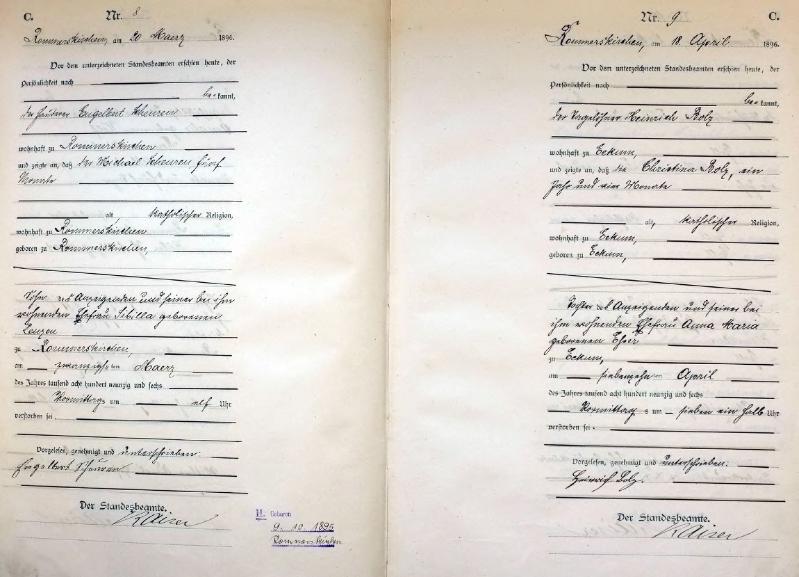 C.
Nr. 8
Rommerskirchen, am 20 Maerz 1896.
Vor dem unterzeichneten Standesbeamten erschien heute, der
Persönlichkeit nach
be= kannt,
der Engelbert Scheuren
wohnhaft zu Rommerskirchen
und zeigte an, daß der Michael Scheuren fünf
Monate
alt, katholischer Religion,
wohnhaft zu Rommerskirchen
geboren zu Rommerskirchen,
Sohn des Anzeigenden und seiner bei ihm
wohnenden Ehefrau Sibilla geborenen
zu Rommerskirchen,
am zwanzigsten Maerz
des Jahres tausend acht hundert neunzig und sechs
Vormittags um elf Uhr
verstorben sei.
Vorgelesen, genehmigt und unterschrieben
Engelbert Scheuren
Der Standesbeamte.
Kaiser
H. Geboren
9. 10. 1895
Rommerskirchen
Nr. 9
C.
Rommerskirchen, am 18. April 1896.
Vor dem unterzeichneten Standesbeamten erschien heute, der
Persönlichkeit nach
be= kannt,
der Tagelöhner Heinrich Bolz
wohnhaft zu Eckum,
und zeigte an, daß die Christina Bolz, ein
Jahr und vier Monate
alt, katholischer Religion,
wohnhaft zu Eckum,
geboren zu Eckum,
Tochter des Anzeigenden und seiner bei
ihm wohnenden Ehefrau Anna Maria
geborenen Esser
zu Eckum,
am siebenzehnten April
des Jahres tausend acht hundert neunzig und sechs
Vormittags um sieben ein halb Uhr
verstorben sei.
Vorgelesen, genehmigt und unterschrieben.
Heinrich Bolz.
Der Standesbeamte.
Kaiser